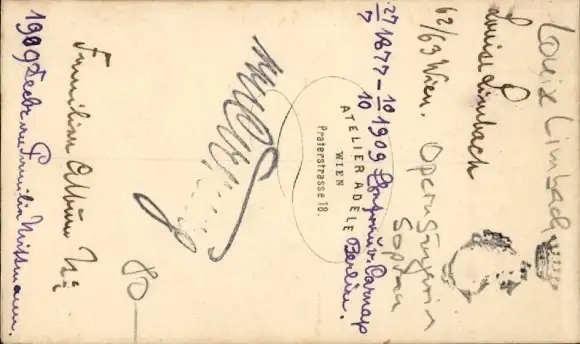 Louise Limbach
Louise Limbach
62/63 Wien. Opernsängerin
Sopran
27/7 1877 – 10/10 1909 v. Carnap
Berlin.
ATELIER ADÈLE
WIEN
Praterstrasse 18.
80
Familien Album No
1909 Dezbr. von Familie